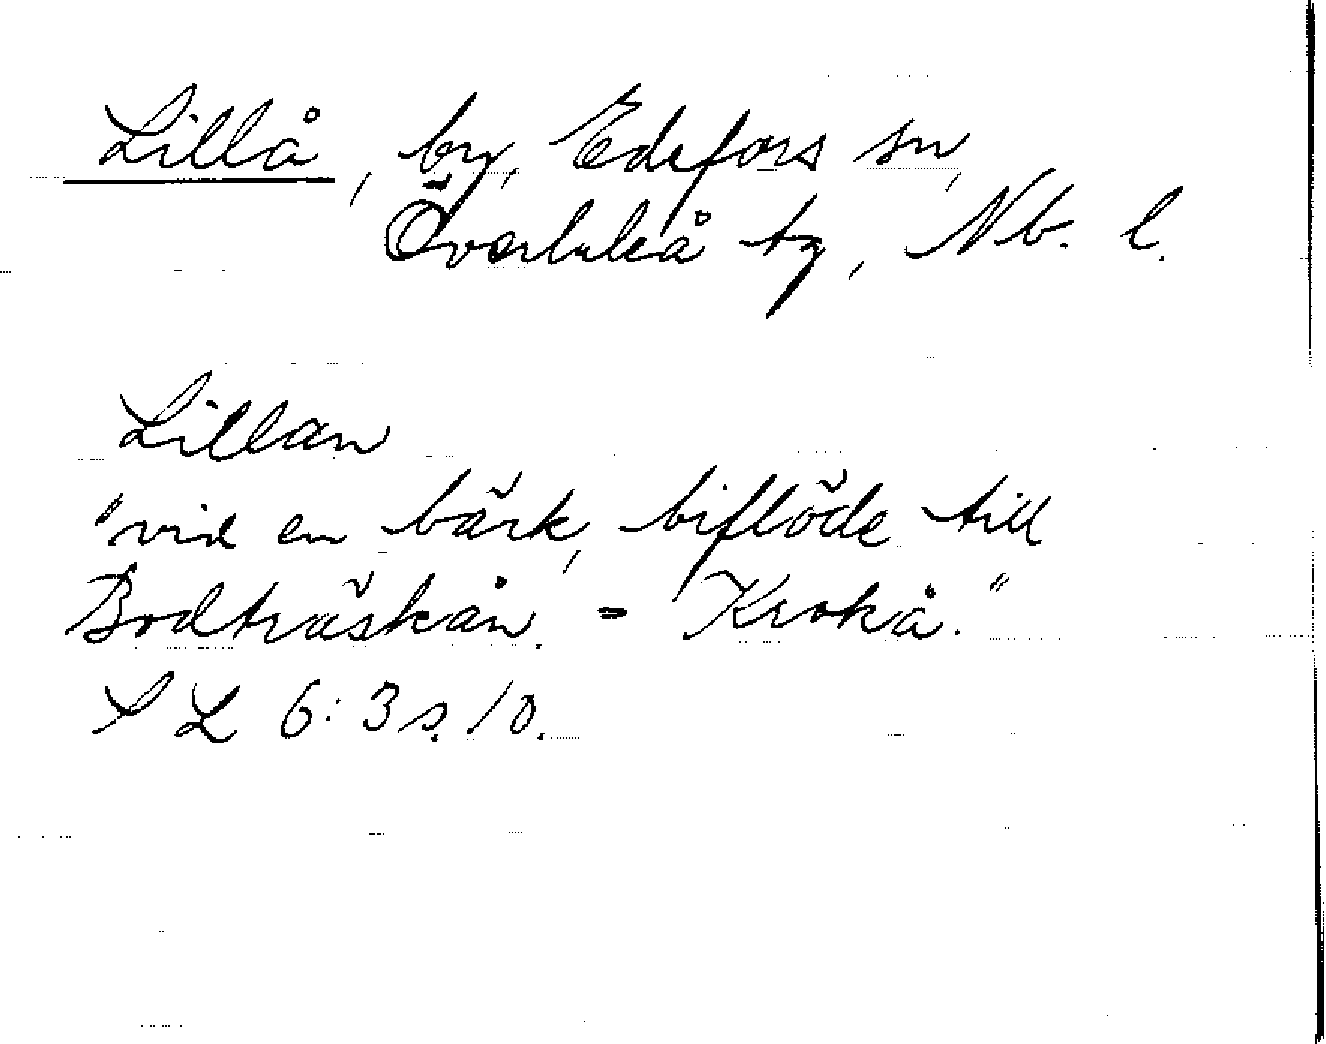 Lillå, by, Edefors sn,
Överluleå tg, Nb. l.
Lillån
"vid en bäck, biflöde till
Bodträskån. = Krokå."
SL 6:3 s. 10.